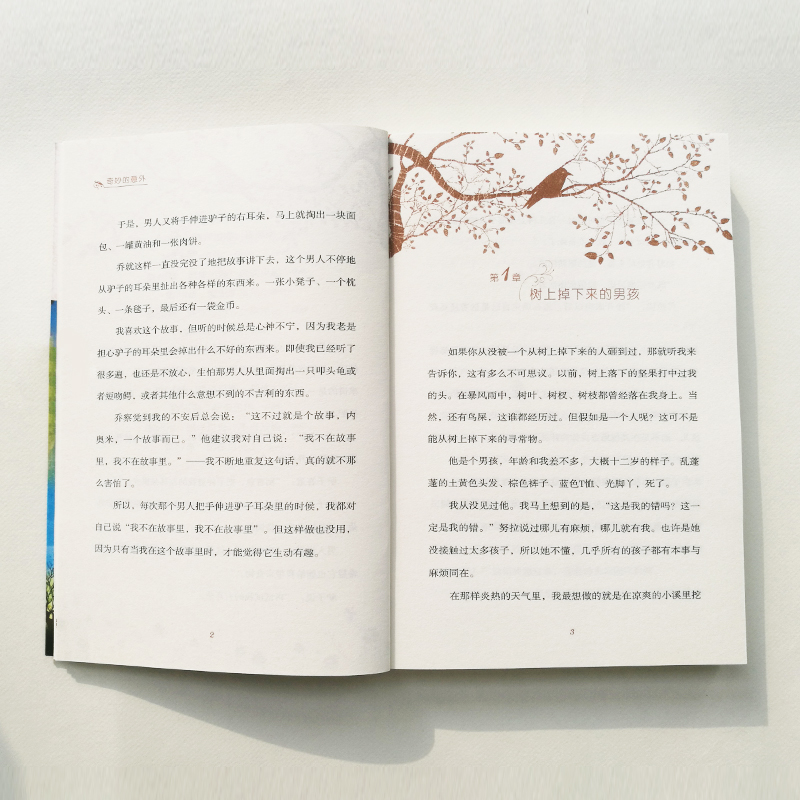 奇妙的意外
于是，男人又将手伸进驴子的右耳朵，马上就掏出一块面
包、一罐黄油和一张肉饼。
乔就这样一直没完没了地把故事讲下去，这个男人不停地
从驴子的耳朵里扯出各种各样的东西来。一张小凳子、一个枕
头、一条毯子，最后还有一袋金币。
我喜欢这个故事，但听的时候总是心神不宁，因为我老是
担心驴子的耳朵里会掉出什么不好的东西来。即使我已经听了
很多遍，也还是不放心，生怕那男人从里面掏出一只叩头龟或
者短吻鳄，或者其他什么意想不到的不吉利的东西。
乔察觉到我的不安后总会说：“这不过就是个故事，内
奥米，一个故事而已。”他建议我对自己说：“我不在故事
里，我不在故事里。”——我不断地重复这句话，真的就不那
么害怕了。
所以，每次那个男人把手伸进驴子耳朵里的时候，我都对
自己说“我不在故事里，我不在故事里”。但这样做也没用，
因为只有当我在这个故事里时，才能觉得它生动有趣。
2
第1章
树上掉下来的男孩
如果你从没被一个从树上掉下来的人砸到过，那就听我来
告诉你，这有多么不可思议。以前，树上落下的坚果打中过我
的头。在暴风雨中，树叶、树杈、树枝都曾经落在我身上。当
然，还有鸟屎，这谁都经历过。但假如是一个人呢？这可不是
能从树上掉下来的寻常物。
他是个男孩，年龄和我差不多，大概十二岁的样子。乱蓬
蓬的土黄色头发、棕色裤子、蓝色T恤、光脚丫，死了。
我从没见过他。我马上想到的是，“这是我的错吗？这一
定是我的错。”努拉说过哪儿有麻烦，哪儿就有我。也许是她
没接触过太多孩子，所以她不懂，几乎所有的孩子都有本事与
麻烦同在。
在那样炎热的天气里，我最想做的就是在凉爽的小溪里挖
3